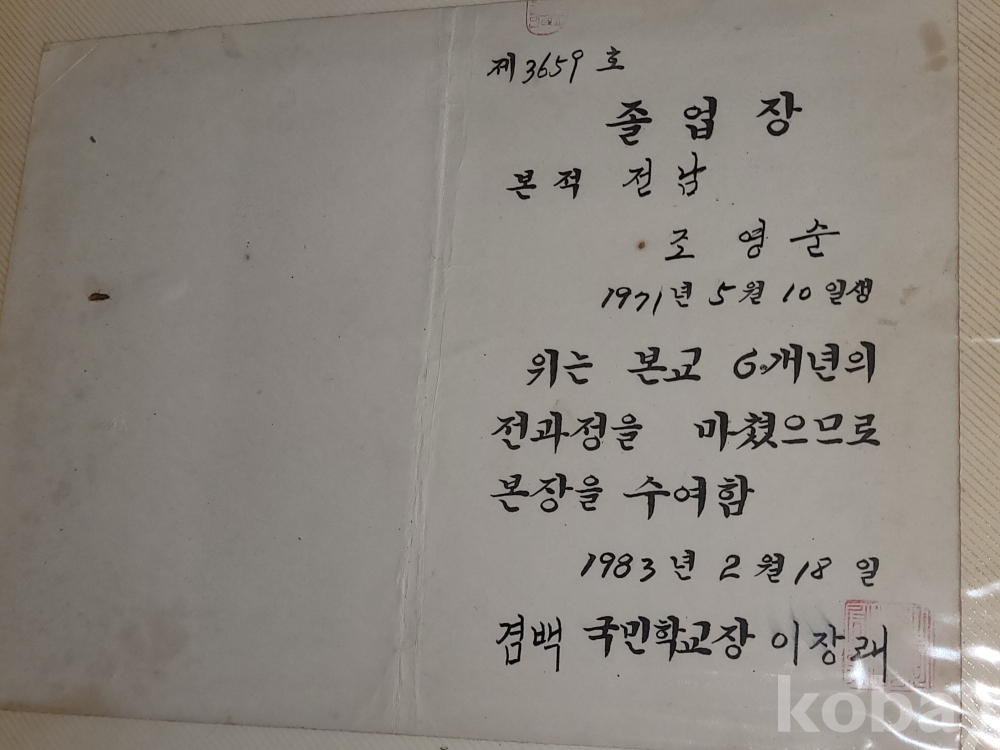 제3659호
졸업장
본적 전남
조영순
1971년 5월 10일생
위는 본교 6개년의
전과정을 마쳤으므로
본장을 수여함
1983년 2월 18일
겸백 국민학교장 이장래
koba